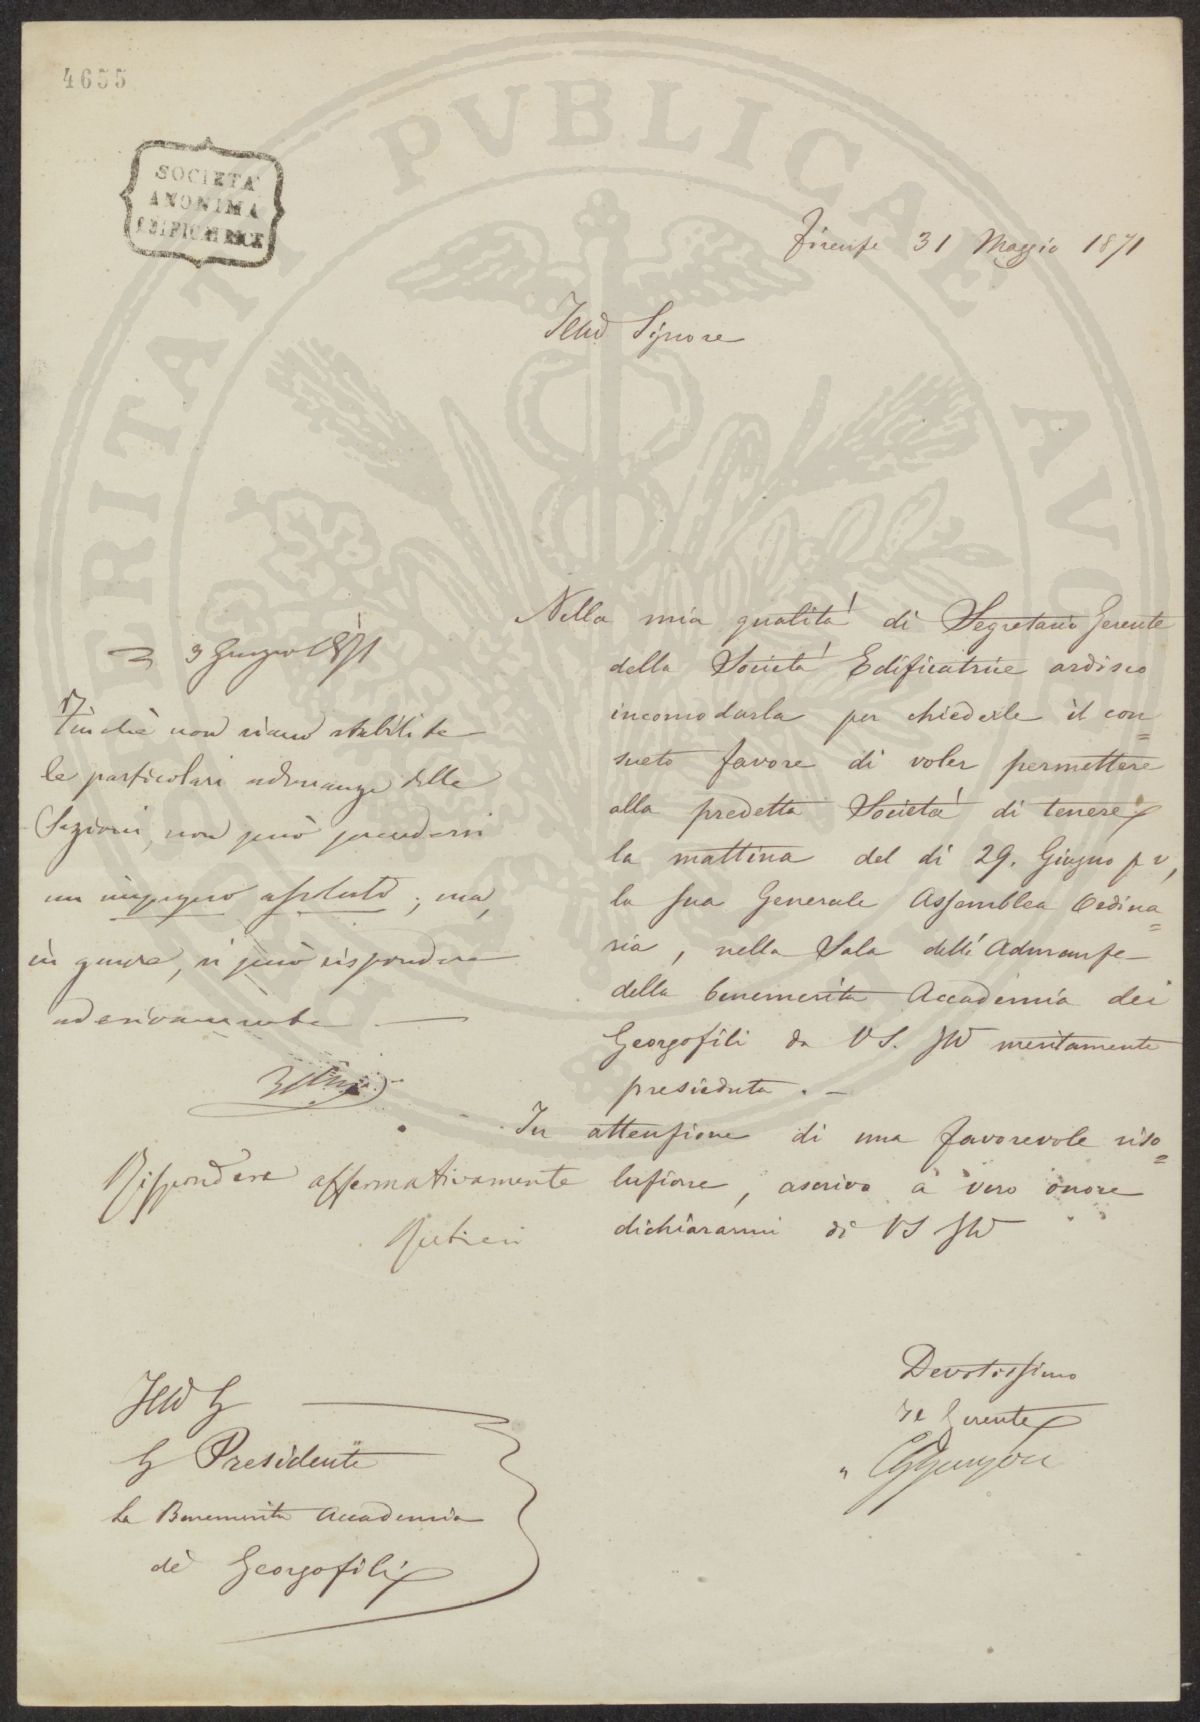 4655
SOCIETÀ
ANONIMA
EDIFICATRICE
PROSPERITATI PVBLICAE AVGENDAE
Firenze 31 Maggio 1871
Illmo Signore
Nella mia qualità di Segretario Gerente
della Società Edificatrice ardisco
incomodarla per chiederle il con=
sueto favore di voler permettere
alla predetta Società di tenere
la mattina del dì 29. Giugno p v,
la sua Generale Assemblea Ordina=
ria, nella Sala delle Adunanze
della benemerita Accademia dei
Georgofili da VS. Illma meritamente
presieduta. —
In attenzione di una favorevole riso=
luzione, ascrivo a vero onore
dichiararmi di VS Illma
Devotissimo
Il Gerente
3 Giugno 1871
Finchè non siano stabilite
le particolari adunanze delle
Sezioni, non può prendersi
un impegno assoluto; ma,
in genere, si può rispondere
adesivamente —
Rispondere affermativamente
Illmo Sig
Sig Presidente
La Benemerita Accademia
dei Georgofili